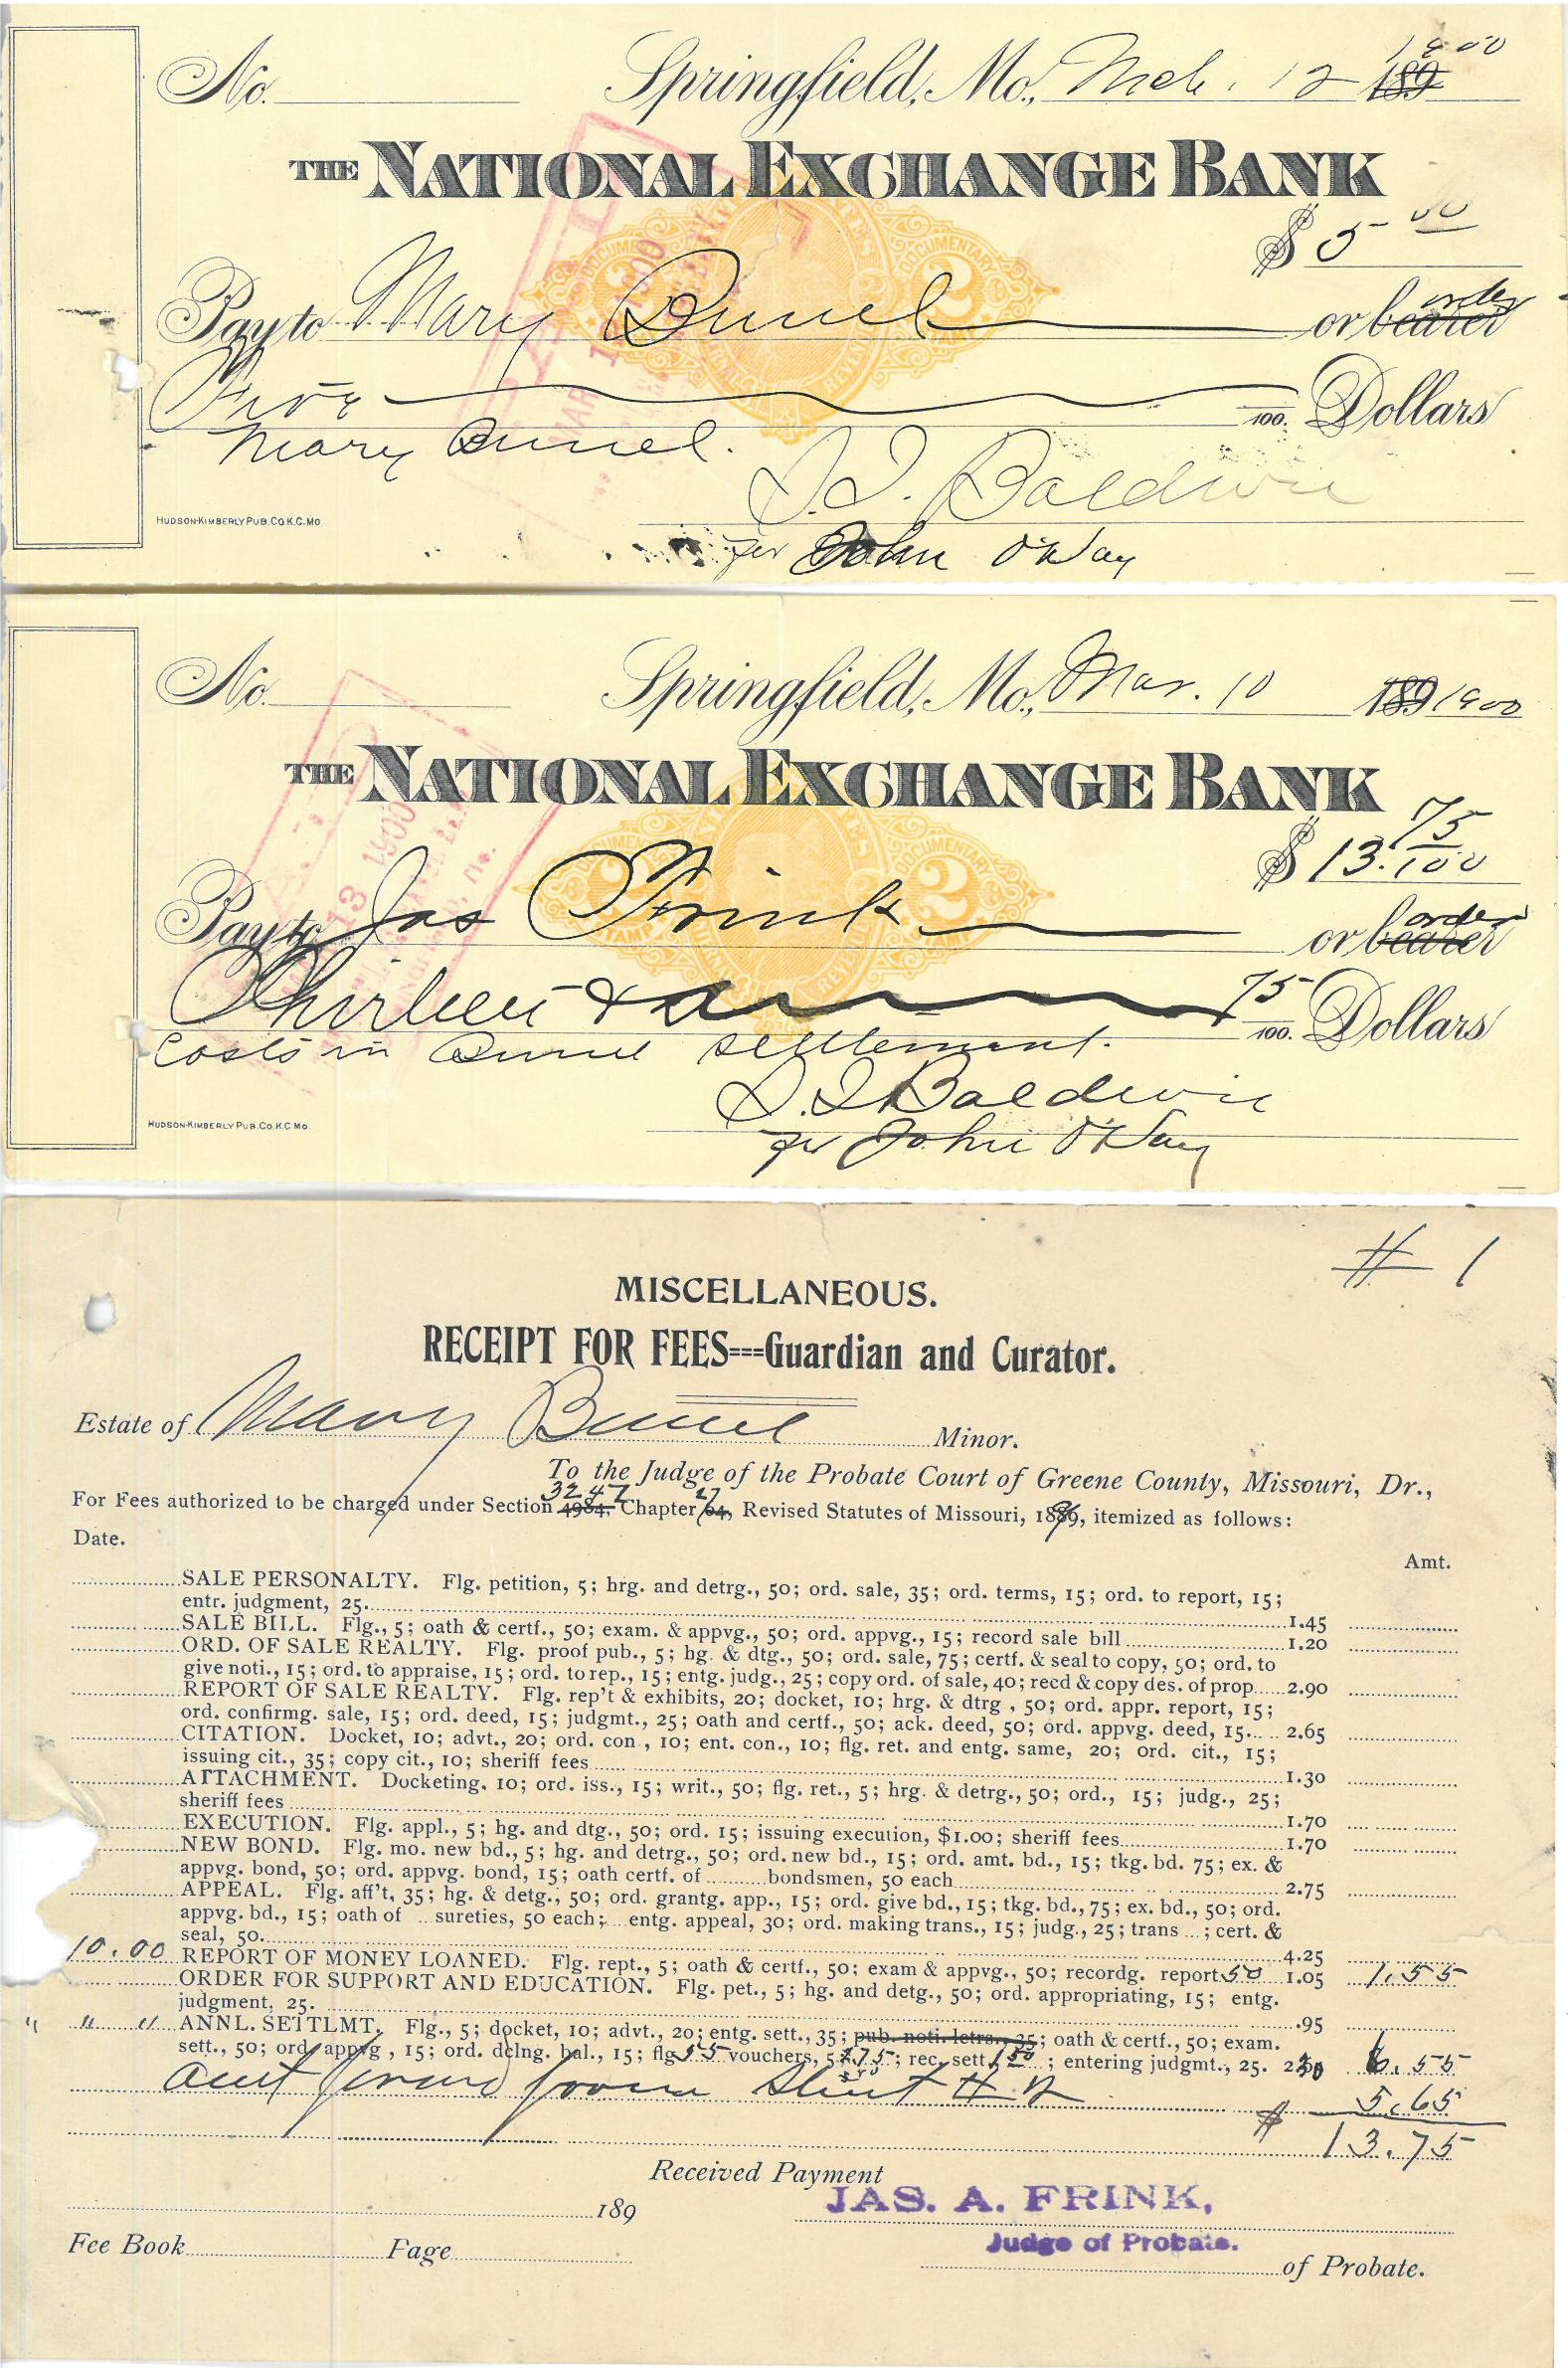 No.
Springfield, Mo., Mch. 12 189 1900
THE NATIONAL EXCHANGE BANK
$ 5 00
Pay to Mary Bunel or bearer order
Five /100. Dollars
Mary Bunel.
D.D. Baldwin
HUDSON-KIMBERLY PUB. CO. K.C. MO.
per John O'Day
No.
Springfield, Mo., Mar. 10 189 1900
THE NATIONAL EXCHANGE BANK
$ 13. 75/100
Pay to Jas Frink or bearer order
Thirteen & 75/100. Dollars
Costs in Bunel settlement.
D.D Baldwin
HUDSON-KIMBERLY PUB. CO. K.C. MO.
per John O'Day
# 1
MISCELLANEOUS.
RECEIPT FOR FEES===Guardian and Curator.
Estate of Mary Bunel Minor.
To the Judge of the Probate Court of Greene County, Missouri, Dr.,
For Fees authorized to be charged under Section 4984, 3247 Chapter 64, 27 Revised Statutes of Missouri, 1889, itemized as follows:
Date.
Amt.
SALE PERSONALTY. Flg. petition, 5; hrg. and detrg., 50; ord. sale, 35; ord. terms, 15; ord. to report, 15;
entr. judgment, 25. 1.45
SALE BILL. Flg., 5; oath & certf., 50; exam. & appvg., 50; ord. appvg., 15; record sale bill 1.20
ORD. OF SALE REALTY. Flg. proof pub., 5; hg. & dtg., 50; ord. sale, 75; certf. & seal to copy, 50; ord. to
give noti., 15; ord. to appraise, 15; ord. to rep., 15; entg. judg., 25; copy ord. of sale, 40; recd & copy des. of prop. 2.90
REPORT OF SALE REALTY. Flg. rep't & exhibits, 20; docket, 10; hrg. & dtrg, 50; ord. appr. report, 15;
ord. confirmg. sale, 15; ord. deed, 15; judgmt., 25; oath and certf., 50; ack. deed, 50; ord. appvg. deed, 15. 2.65
CITATION. Docket, 10; advt., 20; ord. con., 10; ent. con., 10; flg. ret. and entg. same, 20; ord. cit., 15;
issuing cit., 35; copy cit., 10; sheriff fees 1.30
ATTACHMENT. Docketing, 10; ord. iss., 15; writ., 50; flg. ret., 5; hrg. & detrg., 50; ord., 15; judg., 25;
sheriff fees 1.70
EXECUTION. Flg. appl., 5; hg. and dtg., 50; ord. 15; issuing execution, $1.00; sheriff fees 1.70
NEW BOND. Flg. mo. new bd., 5; hg. and detrg., 50; ord. new bd., 15; ord. amt. bd., 15; tkg. bd. 75; ex. &
appvg. bond, 50; ord. appvg. bond, 15; oath certf. of bondsmen, 50 each 2.75
APPEAL. Flg. aff't, 35; hg. & detg., 50; ord. grantg. app., 15; ord. give bd., 15; tkg. bd., 75; ex. bd., 50; ord.
appvg. bd., 15; oath of sureties, 50 each; entg. appeal, 30; ord. making trans., 15; judg., 25; trans ; cert. &
seal, 50. 4.25
10.00 REPORT OF MONEY LOANED. Flg. rept., 5; oath & certf., 50; exam & appvg., 50; recordg. report 50 1.05 1.55
ORDER FOR SUPPORT AND EDUCATION. Flg. pet., 5; hg. and detg., 50; ord. appropriating, 15; entg.
judgment, 25. .95
" " " ANNL. SETTLMT. Flg., 5; docket, 10; advt., 20; entg. sett., 35; pub. noti. letrs., 35; oath & certf., 50; exam.
sett., 50; ord. appvg, 15; ord. dclng. bal., 15; flg 55 vouchers, 5 ; rec. sett. 150 ; entering judgmt., 25. 6.55
Amt forwd from Sheet # 2 5.65
$ 13.75
Received Payment
JAS. A. FRINK,
189
Judge of Probate.
Fee Book Page
of Probate.